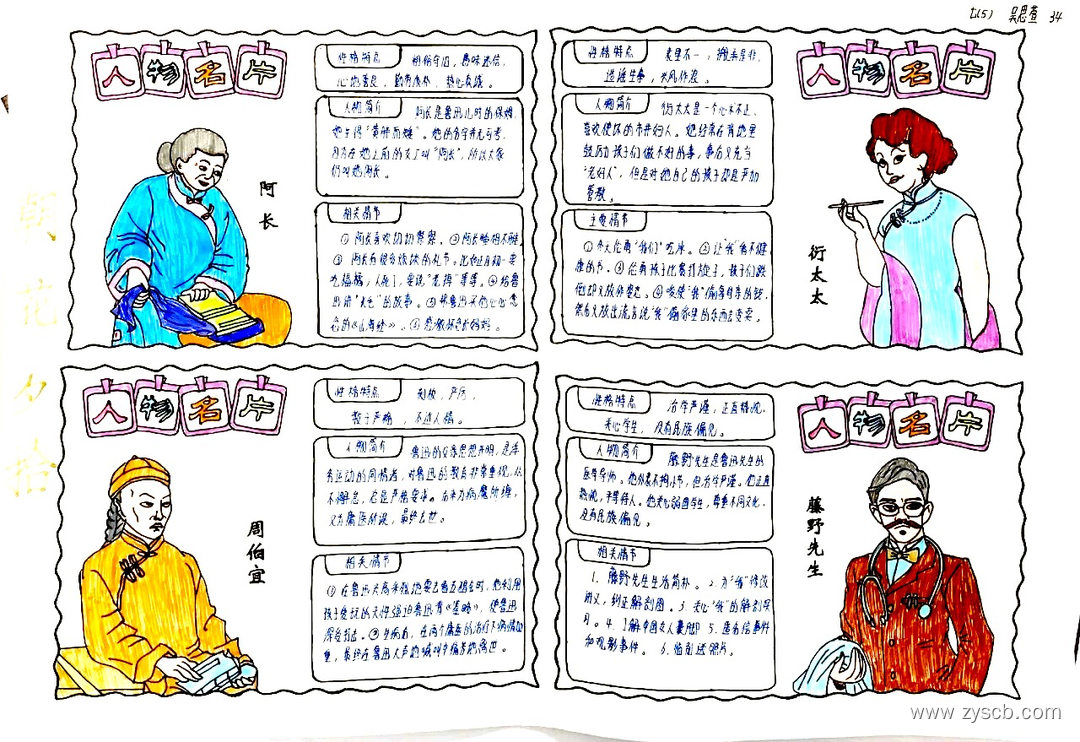 七(5) 吴思萱 34
朝花夕拾
人物名片
性格特点 粗俗守旧,愚昧迷信,
心地善良,勤劳质朴,热心真诚。
人物简介 阿长是鲁迅儿时的保姆,
她生得“黄胖而矮”。她的名字并无可考,
因为在她上面的女工叫“阿长”,所以大家
们叫她阿长。
相关情节
① 阿长喜欢切切察察。② 阿长睡相不雅。
③ 阿长有很多
吃福橘,人死了,要说“老掉”等等。④ 给鲁
迅讲“长毛”的故事。⑤ 替鲁迅买他心心念
念的《山海经》。
阿长
人物名片
性格特点 表里不一,搬弄是非,
造谣生事,
人物简介 衍太太是一个心术不正、
喜欢使坏的市井妇人。她经常在背地里
鼓励孩子们做不好的事,事后又充当
“老好人”,但是对她自己的孩子却是严加
管教。
主要情节
① 冬天怂恿“我们”吃冰。② 让“我”看不健
康的书。③ 怂恿孩子比赛打旋子,孩子们跌
倒却又放
④ 唆使“我”偷母亲的钱,
然后又放出流言说“我”偷家里的东西去变卖。
衍太太
人物名片
性格特点 严厉,
教子严格,不近人情。
人物简介 鲁迅的父亲思想开明,是洋
务运动的同情者,对鲁迅的教育非常重视,从
不懈怠,总是严格要求。后来为病魔所缠,
又为庸医所误,最终去世。
相关情节
① 在鲁迅兴高采烈地要去看五猖会时,他利用
孩子爱玩的天性强迫鲁迅背《鉴略》,使鲁迅
深受打击。② 生病后,在两个庸医的治疗下病情加
重,最终在鲁迅大声的喊叫中痛苦地离世。
周伯宜
人物名片
性格特点 治学严谨,正直热忱,
关心学生,没有民族偏见。
人物简介 藤野先生是鲁迅先生的
医学导师。他外表不拘小节,但治学严谨。他正直
热忱,平等待人。他关心弱国学生,尊重不同文化,
没有民族偏见。
相关情节
1. 藤野先生生活简朴。2. 为“我”修改
讲义,纠正解剖图。3. 关心“我”的解剖实
习。4. 了解中国女人裹脚 5. 匿名信事件
和观影事件。6. 临别送照片。
藤野先生
www.zyscb.com